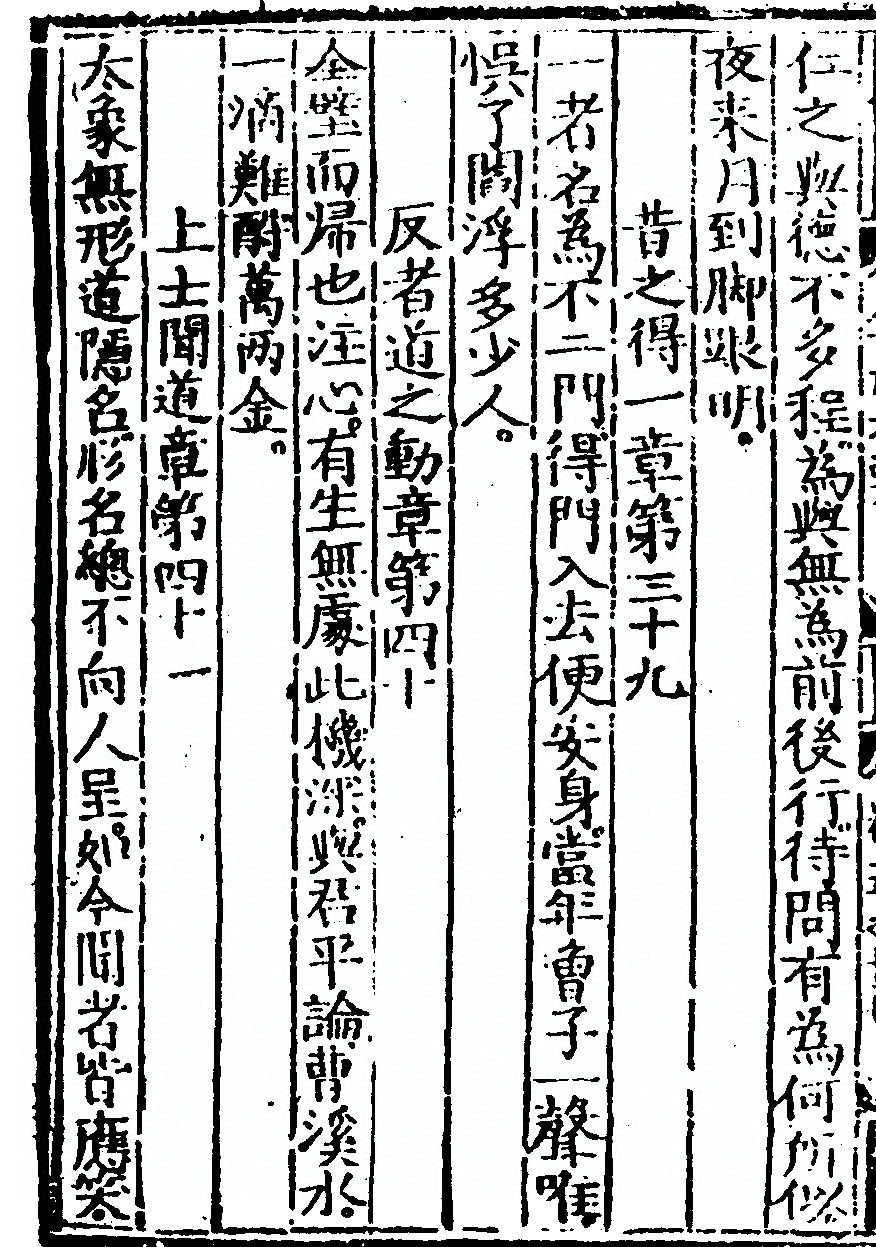 仁之與德不多程為與無為前後行待問有為何所似
夜来月到脚跟明
昔之得一章第三十九
一者名為不二門得門入去便安身當年曾子一聲唯
悞了閻浮多少人
反者道之動章第四十
全壁而歸也注心有生無處此機深與君平論曹溪水
一滴難酧萬两金
上士聞道章第四十一
太象無形道隱名形名總不向人呈如今聞者皆應笑